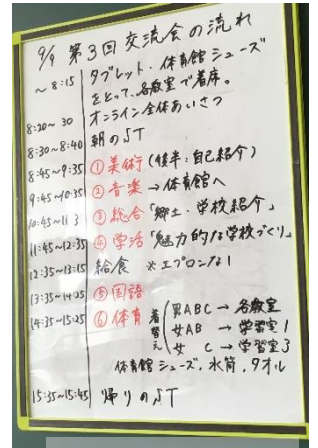 9/9 第3回交流会の流れ
~8:15 タブレット・体育館シューズ
をとって、各教室で着席。
オンライン全体あいさつ
8:20~30
8:30~8:40 朝のST
8:45~9:35 ①美術(後半:自己紹介)
9:45~10:35 ②音楽→体育館へ
10:45~11:3 ③総合「郷土・学校紹介」
11:45~12:35 ④学活「魅力的な学校づくり」
12:35~13:15 給食 ※エプロンなし
13:35~14:25 ⑤国語
14:35~15:25 ⑥体育
着替え
男ABC→各教室
女AB→学習室1
女C→学習室3
体育館シューズ、水筒、タオル
15:35~15:45 帰りのST